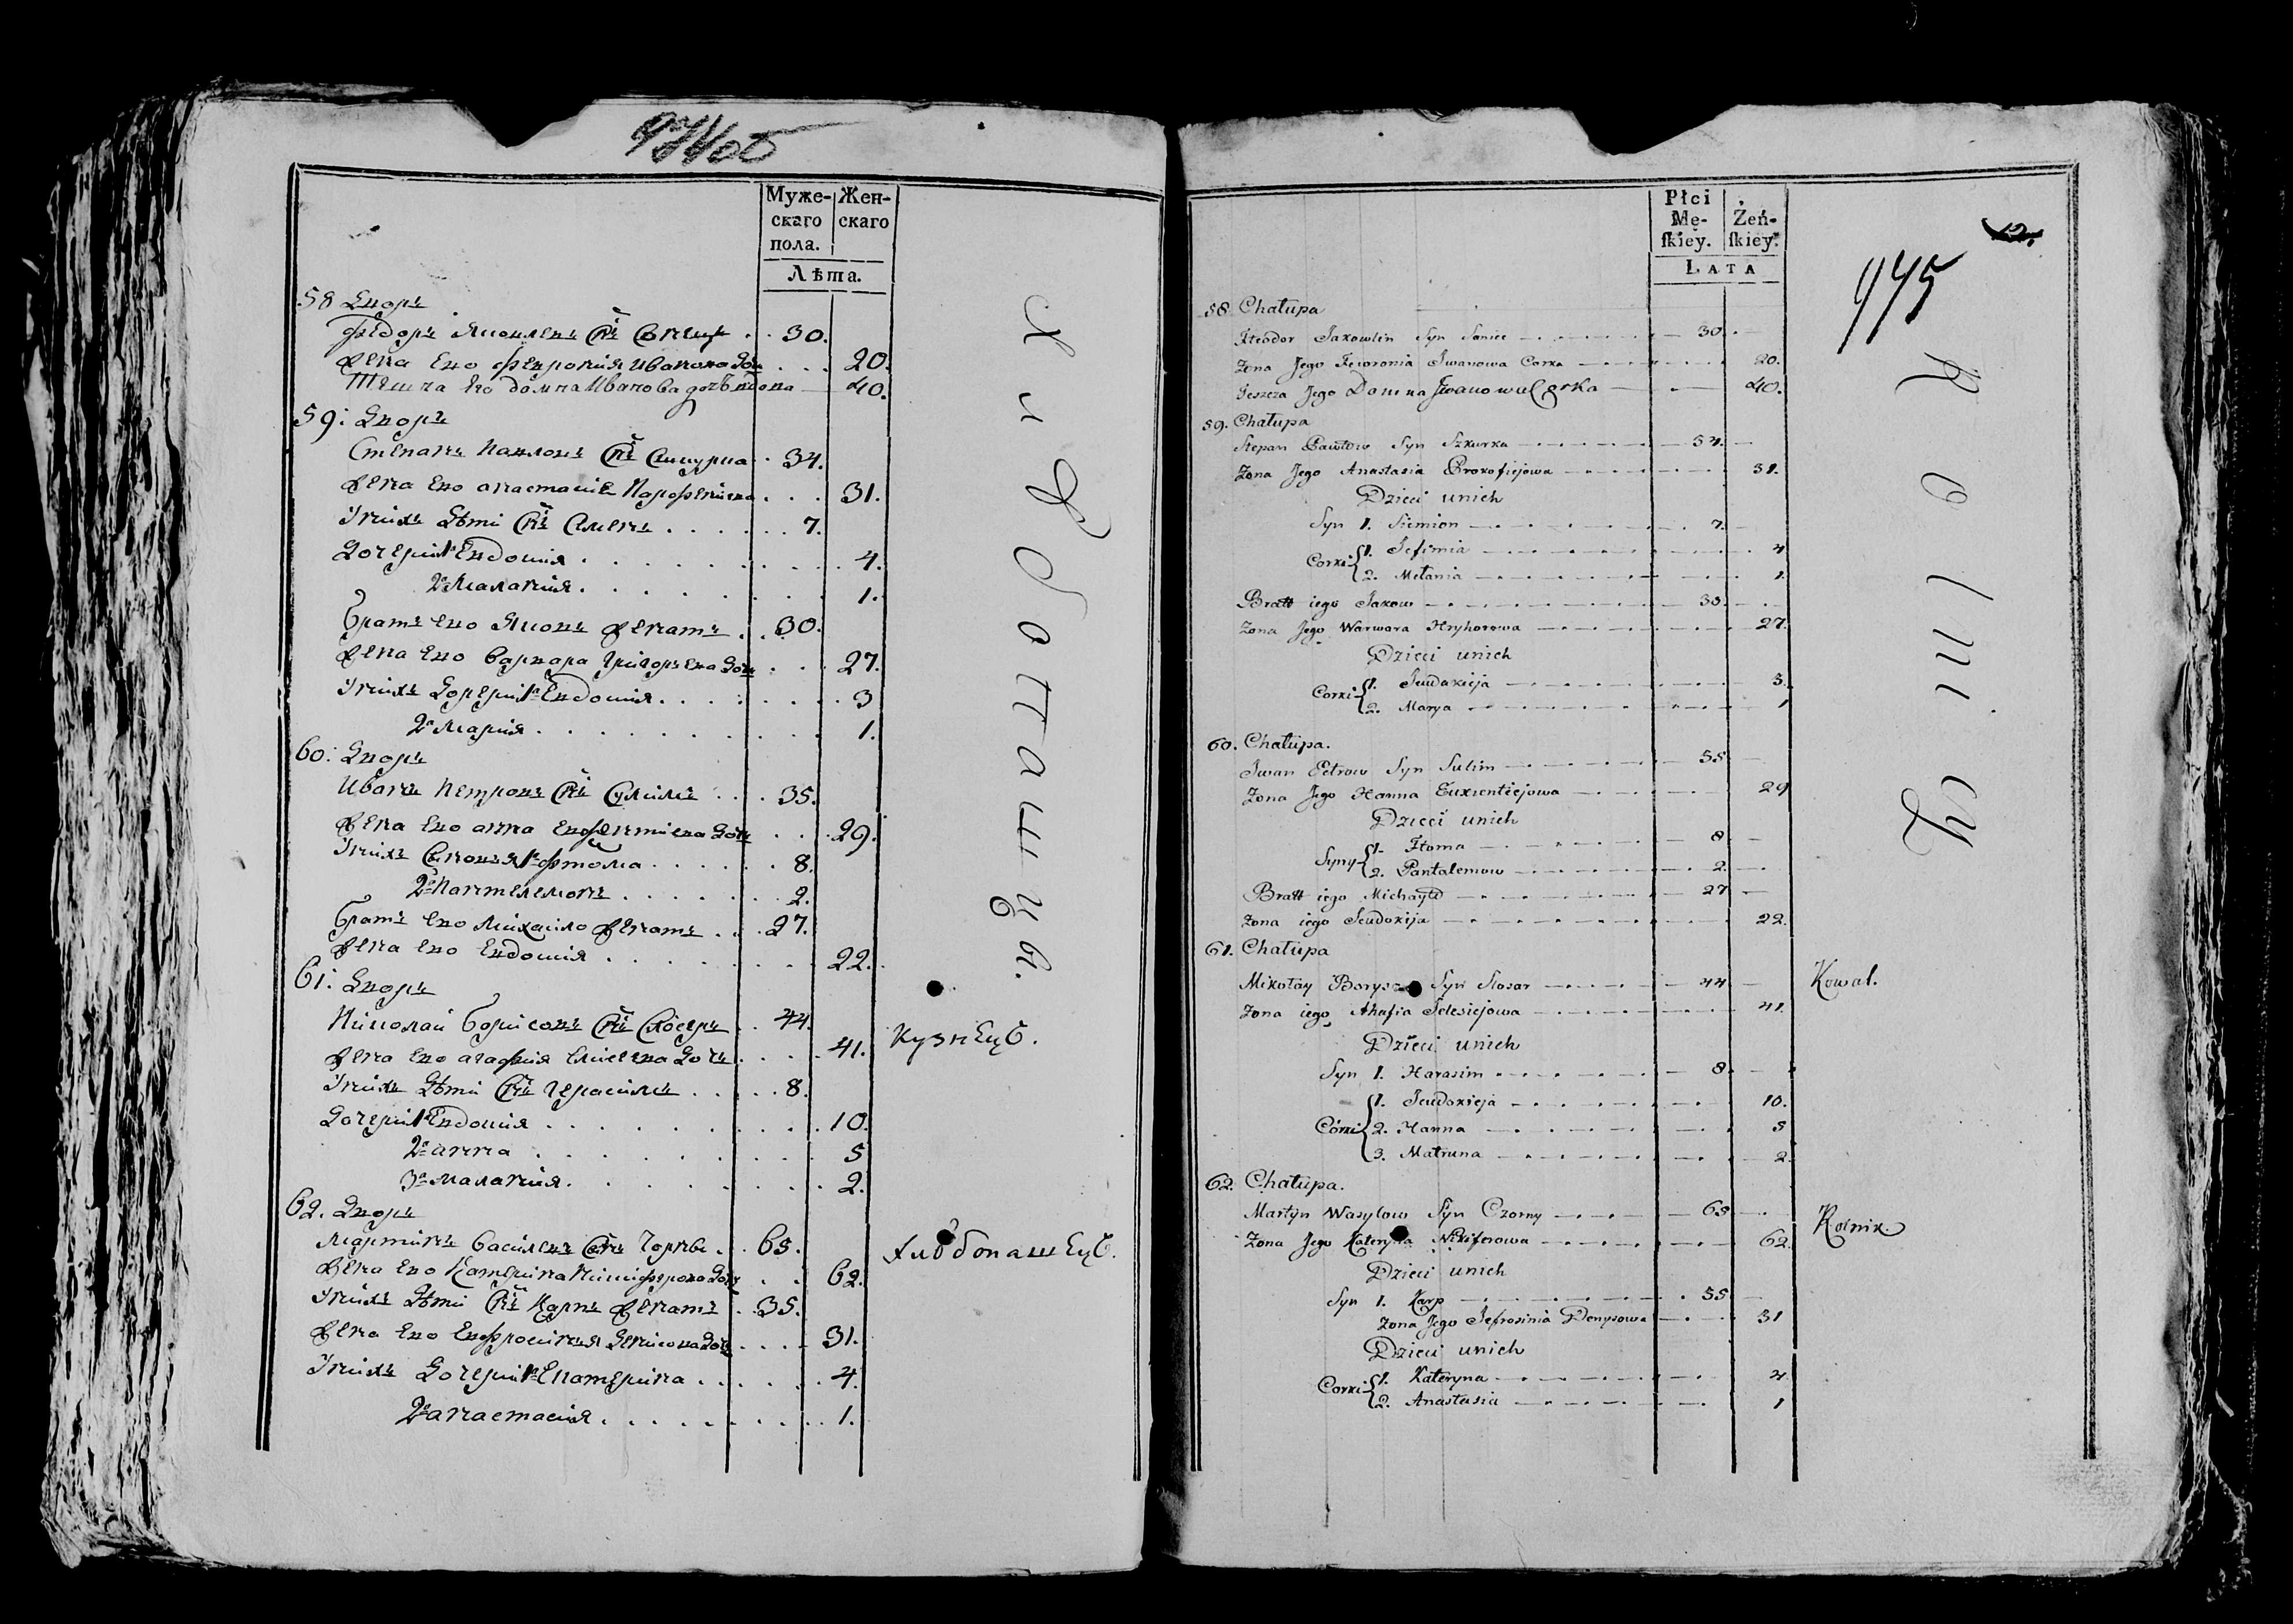 Муже-
скаго
пола.
Жен-
скаго
Лѣта.
58 Дворъ
Федоръ Яковлевъ Снъ . . 30.
Жена Ево Феврония Иванова Дочь . . . 20.
Теща Его домна Иванова дочь вдова 40.
59: Дворъ
Степанъ Павловъ Снъ Шкурка . 34.
Жена Ево анастасия . . . 31.
У нихъ Дѣти Снъ Семенъ . . . . . . 7.
Дочери 1я Евдокия . . . . . . . . 4.
2я Малания . . . . . . . . 1.
Братъ Ево Яковъ Женатъ . . 30.
Жена Ево Варвара Григорьева Дочь . . . 27.
У нихъ Дочери 1я Евдокия . . . . . . . . 3
2я Мария . . . . . . . . . . 1.
60: Дворъ
Иванъ Петровъ Снъ Сулимъ . . . 35.
Жена Ево анна Дочь . . . 29.
У нихъ Сыновья 1й фтома . . . . . . 8.
2й Пантелемонъ . . . . . . . 2.
Братъ Ево Михайло Женатъ . . . 27.
Жена Ево Евдокия . . . . . . . . 22.
61: Дворъ
Николай Борисовъ Снъ Слосарь . . 44.
Жена Ево агафия Дочь . . . . 41.
Кузнецъ.
У нихъ Дѣти Снъ Герасимъ . . . . . 8.
Дочери 1я Евдокия . . . . . . . . . 10.
2я анна . . . . . . . . 5
3я Малания . . . . . . . . 2.
62. Дворъ
Мартинъ Василевъ Снъ Чорный . . 65.
Хлѣбопашецъ.
Жена Ево Катерина Никифорова Дочь . . 62.
У нихъ Дѣти Снъ Карпъ Женатъ . . 35.
Жена Ево Ефросиния Денисова Дочь . . . . 31.
У нихъ Дочери 1я Екатерина . . . . . . 4.
2я анастасия . . . . . . . . . 1.
Хлѣбопашцы.
Płci
Mę-
ſkiey.
Żeń-
ſkiey.
LATA
12.
945
58. Chałupa
Fteodor Jakowlin Syn 30.
Zona Jego Fewronia Iwanowa Corka 20.
Teszcza Jego Domna Iwanowa Corka 40.
59. Chałupa
Stepan Pawłow Syn Szkurka 34.
Zona Jego Anastasia Prokofiejowa 31.
Dzieci unich
Syn 1. Siemion 7.
Corki 1. Jefimia 4
2. Melania 1.
Bratt iego Jakow 30.
Zona Jego Warwara Hryhorowa 27.
Dzieci unich
Corki 1. Jeudokieja 3.
2. Marya 1
60. Chałupa.
Iwan Petrow Syn Sulim 35
Zona Jego Hanna Eukientiejowa 29
Dzieci unich
Syny 1. Ftoma 8
2. Pantalemow 2.
Bratt iego Michayło 27
Zona iego Jeudokija 22.
61. Chałupa
Mikołay Syn Slosar 44
Kowal.
Zona iego Ahafia Jelesiejowa 41.
Dzieci unich
Syn 1. Harasim 8
Córki 1. Jeudokieja 10.
2. Hanna 5
3. Matruna 2.
62. Chałupa.
Martyn Wasylow Syn Czorny 65
Rolnik
Zona Jego Kateryna Nikiforowa 62.
Dzieci unich
Syn 1. Karp 35
Zona Jego Jefrosinia Denysowa 31
Dzieci unich
Corki 1. Kateryna 4
2. Anastasia 1
Rolnicy